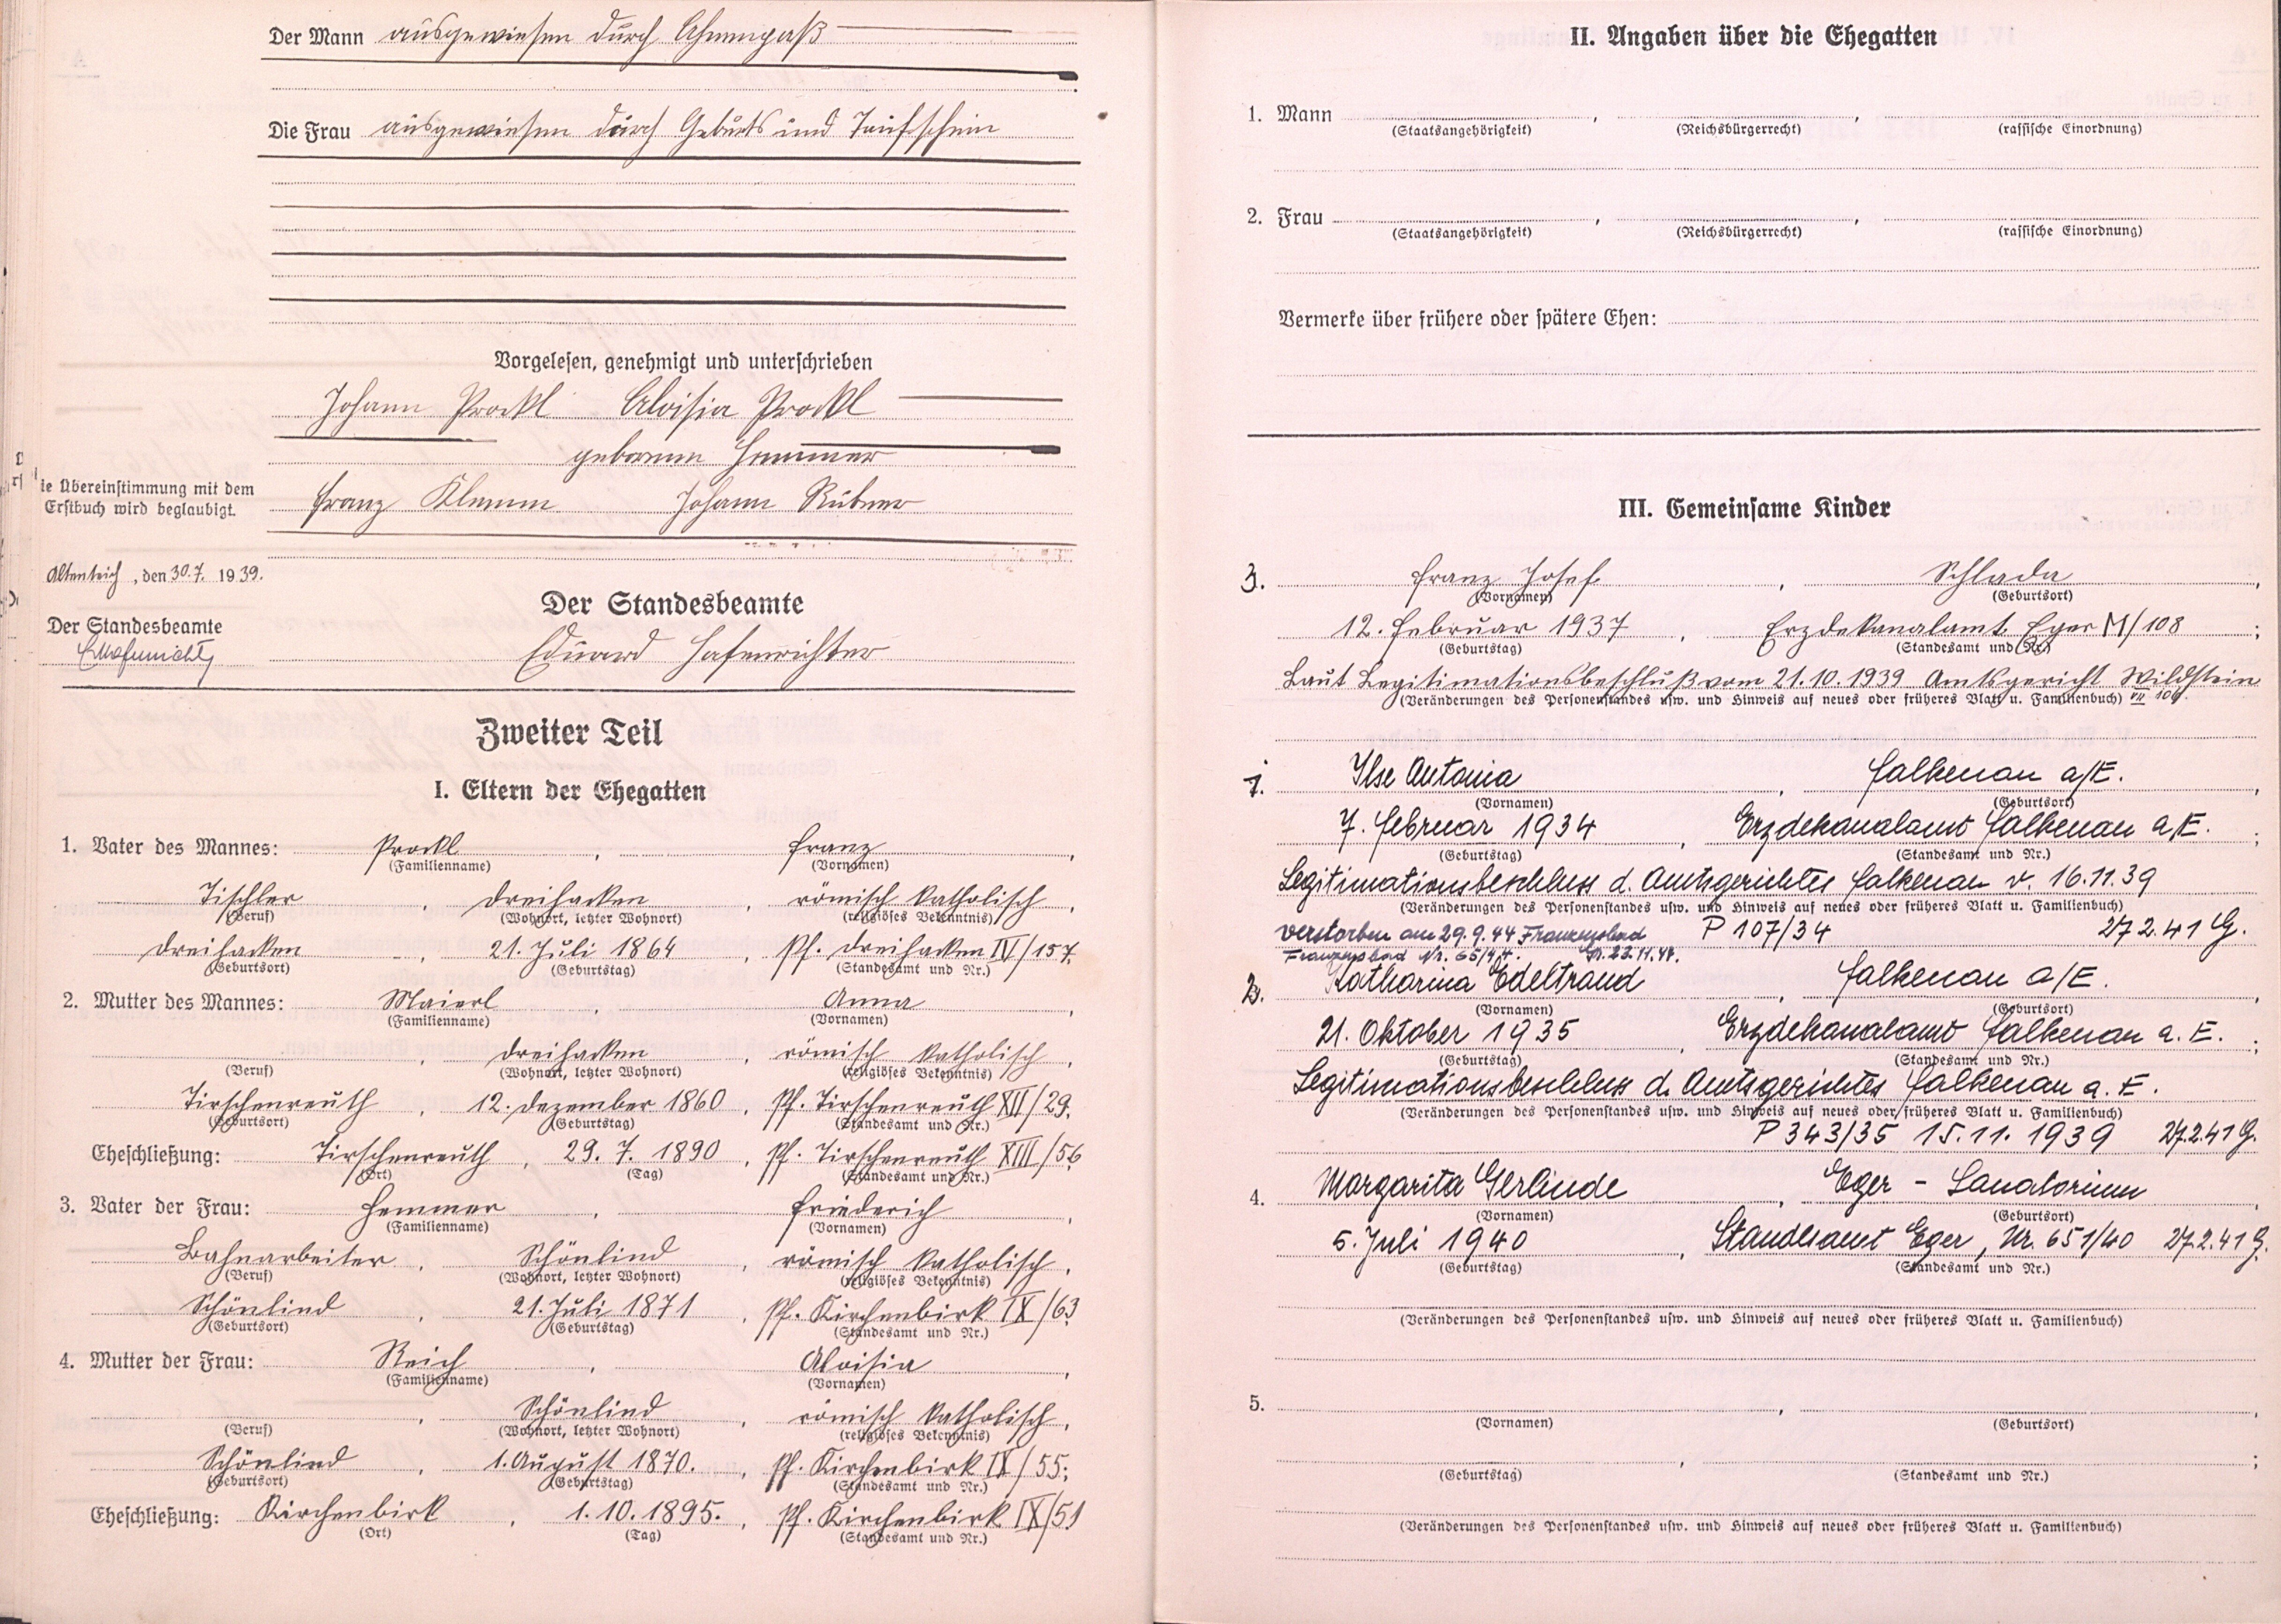 Der Mann ausgewiesen durch Ahnenpaß
Die Frau ausgewiesen durch Geburts und Taufschein
Vorgelesen, genehmigt und unterschrieben
Johann Prockl Aloisia Prockl
geborene Hemmer
Franz Klemm Johann Rubner
ie Übereinstimmung mit dem
Erstbuch wird beglaubigt.
Altenteich, den 30.7. 1939.
Der Standesbeamte
Der Standesbeamte
Eduard Hafenrichter
Zweiter Teil
I. Eltern der Ehegatten
1. Vater des Mannes: Prockl, Franz,
(Familienname) (Vornamen)
Tischler, Dreihacken, römisch katholisch,
(Beruf) (Wohnort, letzter Wohnort) (religiöses Bekenntnis)
Dreihacken, 21. Juli 1864, Pf. Dreihacken IV/157.
(Geburtsort) (Geburtstag) (Standesamt und Nr.)
2. Mutter des Mannes: Maierl, Anna,
(Familienname) (Vornamen)
, Dreihacken, römisch katholisch,
(Beruf) (Wohnort, letzter Wohnort) (religiöses Bekenntnis)
Tirschenreuth, 12. Dezember 1860, Pf. Tirschenreuth XII/29.
(Geburtsort) (Geburtstag) (Standesamt und Nr.)
Eheschließung: Tirschenreuth, 29. 7. 1890, Pf. Tirschenreuth XIII/56
(Ort) (Tag) (Standesamt und Nr.)
3. Vater der Frau: Hemmer, Friederich,
(Familienname) (Vornamen)
Bahnarbeiter, Schönlind, römisch katholisch,
(Beruf) (Wohnort, letzter Wohnort) (religiöses Bekenntnis)
Schönlind, 21. Juli 1871, Pf. Kirchenbirk IX/63
(Geburtsort) (Geburtstag) (Standesamt und Nr.)
4. Mutter der Frau: Reich, Aloisia,
(Familienname) (Vornamen)
, Schönlind, römisch katholisch,
(Beruf) (Wohnort, letzter Wohnort) (religiöses Bekenntnis)
Schönlind, 1. August 1870., Pf. Kirchenbirk IX/55;
(Geburtsort) (Geburtstag) (Standesamt und Nr.)
Eheschließung: Kirchenbirk, 1. 10. 1895., Pf. Kirchenbirk IX/51
(Ort) (Tag) (Standesamt und Nr.)
II. Angaben über die Ehegatten
1. Mann , ,
(Staatsangehörigkeit) (Reichsbürgerrecht) (rassische Einordnung)
2. Frau , ,
(Staatsangehörigkeit) (Reichsbürgerrecht) (rassische Einordnung)
Vermerke über frühere oder spätere Ehen:
III. Gemeinsame Kinder
3. Franz Josef, Schlada,
(Vornamen) (Geburtsort)
12. Februar 1937, Erzdekanalamt Eger M/108;
(Geburtstag) (Standesamt und Nr.)
Laut Legitimationsbeschluß vom 21.10.1939 Amtsgericht Wildstein
(Veränderungen des Personenstandes usw. und Hinweis auf neues oder früheres Blatt u. Familienbuch)
1. Ilse Antonia, Falkenau a/E.,
(Vornamen) (Geburtsort)
7. Februar 1934, Erzdekanalamt Falkenau a/E.;
(Geburtstag) (Standesamt und Nr.)
Legitimationsbeschluss d. Amtsgerichtes Falkenau v. 16.11.39
(Veränderungen des Personenstandes usw. und Hinweis auf neues oder früheres Blatt u. Familienbuch)
verstorben am 29.9.44 Franzensbad P 107/34 27 2.41 G.
Franzensbad Nr. 65/44.
2. Katharina Edeltraud, Falkenau a/E.,
(Vornamen) (Geburtsort)
21. Oktober 1935, Erzdekanalamt Falkenau a. E.;
(Geburtstag) (Standesamt und Nr.)
Legitimationsbeschluss d. Amtsgerichtes Falkenau a. E.
(Veränderungen des Personenstandes usw. und Hinweis auf neues oder früheres Blatt u. Familienbuch)
P 343/35 15.11. 1939 27.2.41 G.
4. Margarita Gerlinde, Eger - Sanatorium,
(Vornamen) (Geburtsort)
5. Juli 1940, Standesamt Eger, Nr. 651/40 27.2.41 G.
(Geburtstag) (Standesamt und Nr.)
(Veränderungen des Personenstandes usw. und Hinweis auf neues oder früheres Blatt u. Familienbuch)
5. , ,
(Vornamen) (Geburtsort)
, ;
(Geburtstag) (Standesamt und Nr.)
(Veränderungen des Personenstandes usw. und Hinweis auf neues oder früheres Blatt u. Familienbuch)